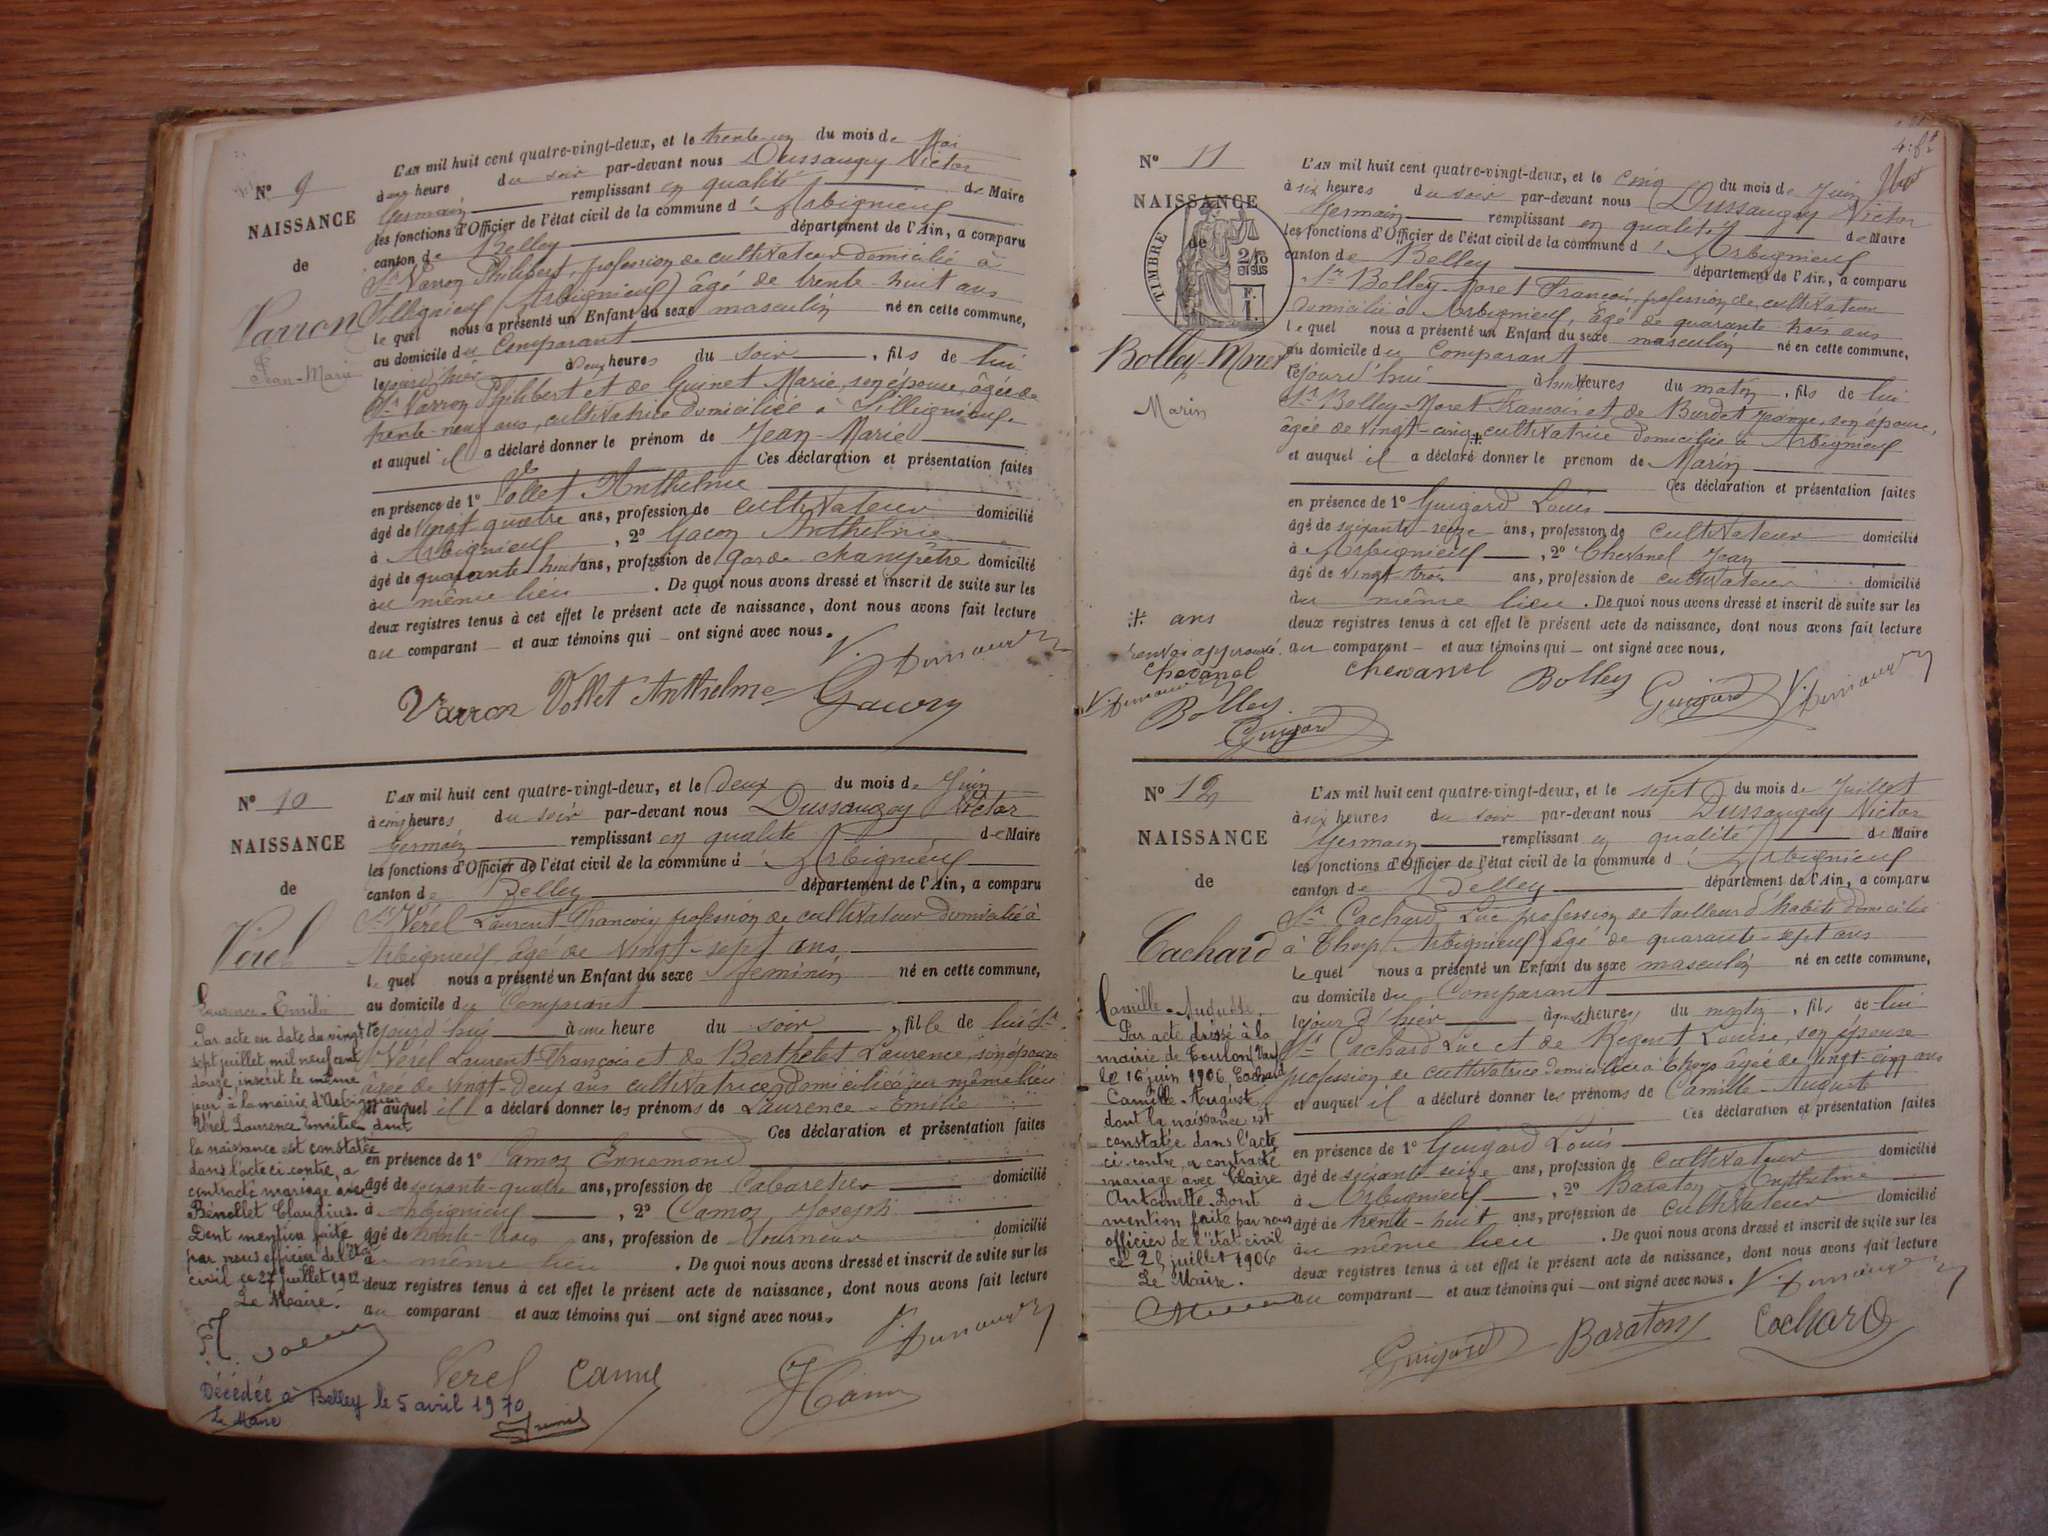 N° 9
NAISSANCE
de
Varron
Jean-Marie
L'AN mil huit cent quatre-vingt-deux, et le trente-un du mois de Mai
à cinq heure du soir par-devant nous Dussaugey Victor
Germain remplissant en qualité de Maire
les fonctions d'Officier de l'état civil de la commune d'Arbignieu
canton de Belley département de l'Ain, a comparu
Sr Varron Philibert, profession de cultivateur domicilié à
Sillignieu (Arbignieu) âgé de trente-huit ans
le quel nous a présenté un Enfant du sexe masculin né en cette commune,
au domicile du Comparant
le jour d'hier à deux heures du soir, fils de lui
Sr Varron Philibert et de Guinet Marie, son épouse, âgée de
trente-neuf ans, cultivatrice domiciliée à Sillignieu
et auquel il a déclaré donner le prénom de Jean-Marie
Ces déclaration et présentation faites
en présence de 1° Vollet Anthelme
âgé de vingt quatre ans, profession de cultivateur domicilié
à Arbignieu, 2° Gacon Anthelme
âgé de quarante-huit ans, profession de garde champêtre domicilié
au même lieu. De quoi nous avons dressé et inscrit de suite sur les
deux registres tenus à cet effet le présent acte de naissance, dont nous avons fait lecture
au comparant et aux témoins qui ont signé avec nous.
Varron Vollet Anthelme
N° 10
NAISSANCE
de
Verel
Laurence-Emilie
Par acte en date du vingt
sept juillet mil neuf cent
douze, inscrit le même
jour à la mairie d'Arbignieu
Verel Laurence Emilie dont
la naissance est constatée
dans l'acte ci contre, a
contracté mariage avec
Benollet Claudius.
Dont mention faite
par nous officier de l'état
civil ce 27 juillet 1912
Le Maire.
Décédée à Belley le 5 avril 1970
Le Maire
L'AN mil huit cent quatre-vingt-deux, et le deux du mois de Juin
à cinq heures du soir par-devant nous Dussaugey Victor
Germain remplissant en qualité de Maire
les fonctions d'Officier de l'état civil de la commune d'Arbignieu
canton de Belley département de l'Ain, a comparu
Sr Verel Laurent-François profession de cultivateur domicilié à
Arbignieu, âgé de vingt-sept ans
le quel nous a présenté un Enfant du sexe féminin né en cette commune,
au domicile du Comparant
le jourd'huy à une heure du soir, fille de lui Sr
Verel Laurent François et de Berthelet Laurence, son épouse
âgée de vingt-deux ans cultivatrice domiciliée au même lieu
et auquel il a déclaré donner les prénoms de Laurence-Emilie
Ces déclaration et présentation faites
en présence de 1° Camoz Ennemond
âgé de soixante-quatre ans, profession de Cabaretier domicilié
à Arbignieu, 2° Camoz Joseph
âgé de trente-trois ans, profession de Tourneur domicilié
à même lieu. De quoi nous avons dressé et inscrit de suite sur les
deux registres tenus à cet effet le présent acte de naissance, dont nous avons fait lecture
au comparant et aux témoins qui ont signé avec nous.
Verel
N° 11
NAISSANCE
de
TIMBRE
Bolley-Moret
Marin
L'AN mil huit cent quatre-vingt-deux, et le cinq du mois de Juin
à six heures du soir par-devant nous Dussaugey Victor
Germain remplissant en qualité de Maire
les fonctions d'Officier de l'état civil de la commune d'Arbignieu
canton de Belley département de l'Ain, a comparu
Sr Bolley-Moret François, profession de cultivateur
domicilié à Arbignieu, âgé de quarante trois ans
le quel nous a présenté un Enfant du sexe masculin né en cette commune,
au domicile du Comparant
le jourd'hui à huit heures du matin, fils de lui
Sr Bolley-Moret François et de Burdet Jeanne, son épouse,
âgée de vingt-cinq + cultivatrice domiciliée à Arbignieu
et auquel il a déclaré donner le prénom de Marin
Ces déclaration et présentation faites
en présence de 1° Guigard Louis
âgé de soixante-seize ans, profession de cultivateur domicilié
à Arbignieu, 2° Chevanel Jean
âgé de vingt-trois ans, profession de cultivateur domicilié
au même lieu. De quoi nous avons dressé et inscrit de suite sur les
deux registres tenus à cet effet le présent acte de naissance, dont nous avons fait lecture
au comparant et aux témoins qui ont signé avec nous.
+ ans
renvoi approuvé.
Chevanel
Bolley
Guigard
Chevanel Bolley Guigard
N° 12
NAISSANCE
de
Cachard
Camille-Auguste
Par acte dressé à la
mairie de Toulon (Var)
le 16 juin 1906, Cachard
Camille-Auguste
dont la naissance est
constatée dans l'acte
ci contre, a contracté
mariage avec Claire
Antoinette. Dont
mention faite par nous
officier de l'état civil
ce 25 juillet 1906
Le Maire.
L'AN mil huit cent quatre-vingt-deux, et le sept du mois de Juillet
à six heures du soir par-devant nous Dussaugey Victor
Germain remplissant en qualité de Maire
les fonctions d'Officier de l'état civil de la commune d'Arbignieu
canton de Belley département de l'Ain, a comparu
Sr Cachard Luc profession de tailleur d'habits domicilié
à Thoys (Arbignieu) âgé de quarante-sept ans
le quel nous a présenté un Enfant du sexe masculin né en cette commune,
au domicile du Comparant
le jour d'hier à quatre heures du matin, fils de lui
Sr Cachard Luc et de Regent Louise, son épouse
profession de cultivatrice domiciliée à Thoys âgée de vingt-cinq ans
et auquel il a déclaré donner les prénoms de Camille-Auguste
Ces déclaration et présentation faites
en présence de 1° Guigard Louis
âgé de soixante seize ans, profession de cultivateur domicilié
à Arbignieu, 2° Baraton Anthelme
âgé de trente-huit ans, profession de cultivateur domicilié
au même lieu. De quoi nous avons dressé et inscrit de suite sur les
deux registres tenus à cet effet le présent acte de naissance, dont nous avons fait lecture
au comparant et aux témoins qui ont signé avec nous.
Guigard Baraton Cachard